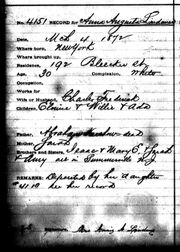 No. 4151 RECORD FOR Anna Augusta
Date, Mch 4, 1872
Where born, New York
Where brought up,
Residence, 192 Bleecker St
Age, 30 Complexion, White
Occupation,
Works for
Wife or Husband, Charles Frederick
Children, Clonie & Willie & Ada
Father,
Mother, Sarah
Brothers and Sisters, Isaac & Mary E. Sarah
& Amy are in Summerville
REMARKS: Deposited by her daughter
#4119 her her record
Signature, Mrs Anna A